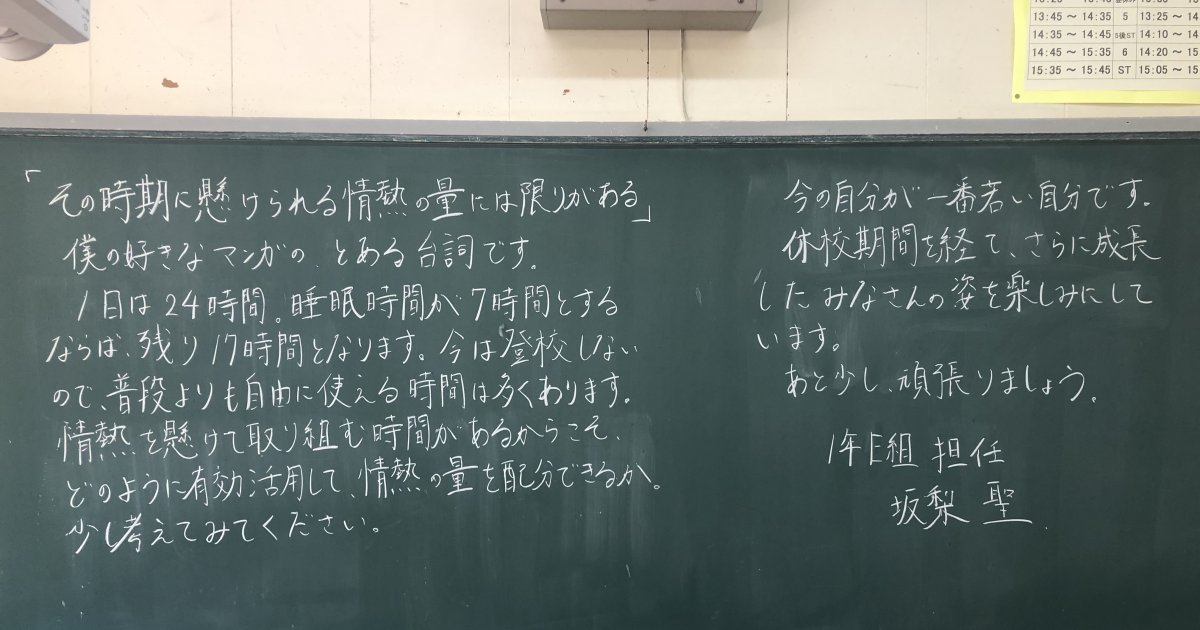 「その時期に懸けられる情熱の量には限りがある」
僕の好きなマンガの、とある台詞です。
1日は24時間。睡眠時間が7時間とする
ならば、残り17時間となります。今は登校しない
ので、普段よりも自由に使える時間は多くあります。
情熱を懸けて取り組む時間があるからこそ、
どのように有効活用して、情熱の量を配分できるか。
少し考えてみてください。
今の自分が一番若い自分です。
休校期間を経て、さらに成長
したみなさんの姿を楽しみにして
います。
あと少し、頑張りましょう。
1年E組 担任
坂梨 聖
13:45 ～ 14:35 5 13:25 ～ 14
14:35 ～ 14:45 5後ST 14:10 ～ 14
14:45 ～ 15:35 6 14:20 ～ 15
15:35 ～ 15:45 ST 15:05 ～ 15